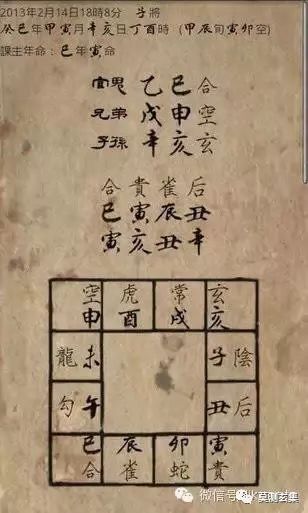 2013年2月14日18時8分 子將
癸巳年甲寅月辛亥日丁酉時(甲辰旬寅卯空)
課主年命:巳年寅命
官鬼 乙巳合
兄弟 戊申空
子孫 辛亥玄
合貴雀后
巳寅辰丑
寅亥丑辛
空虎常玄
申酉戌亥
龍未 子陰
勾午 丑后
巳辰卯寅
合雀蛇貴
微信号
莫测玄集